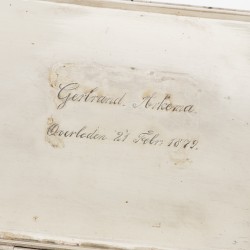 Gerbrand. Arkema.
Overleden 21 Febr. 1879.